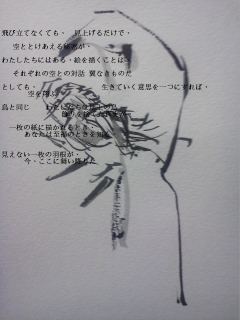 飛び立てなくても・ 見上げるだけで・
空ととけあえる秘密が・
わたしたちにはある・絵を描くことは・
それぞれの空との対話 翼なきものだ
としても・ 生きていく意思を一つにすれば・
空を翔ぶ
鳥と同じ わたしたちは
一枚の紙に描かれるとき・
あなたは至福のときを知る
見えない一枚の羽根が・
今・ここに舞い降りた